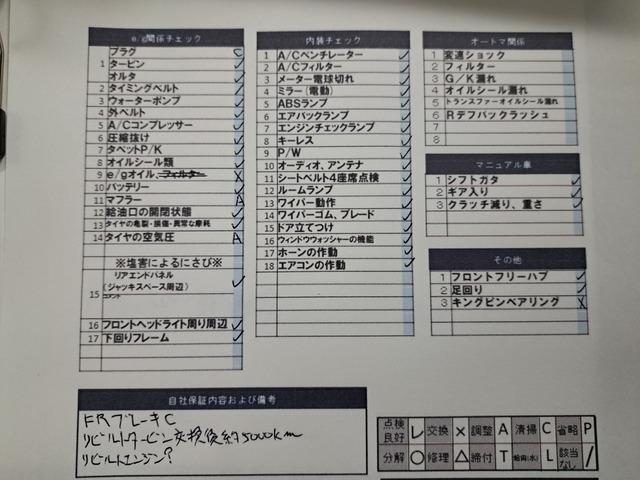 e/g関係チェック
プラグ C
1 タービン ✓
オルタ ✓
2 タイミングベルト ✓
3 ウォーターポンプ ✓
4 外ベルト ✓
5 A/Cコンプレッサー ✓
6 圧縮抜け ✓
7 タペットP/K ✓
8 オイルシール類 ✓
9 e/gオイル、フィルター X
10 バッテリー ✓
11 マフラー A
12 給油口の開閉状態 ✓
13 タイヤの亀裂・損傷・異常な摩耗 ✓
14 タイヤの空気圧 A
※塩害によるにさび※
リアエンドパネル
15 (ジャッキスペース周辺) ✓
コメント
16 フロントヘッドライト周り周辺 ✓
17 下回りフレーム ✓
内装チェック
1 A/Cベンチレーター ✓
2 A/Cフィルター ✓
3 メーター電球切れ ✓
4 ミラー(電動) ✓
5 ABSランプ ✓
6 エアバックランプ ✓
7 エンジンチェックランプ ✓
8 キーレス ✓
9 P/W ✓
10 オーディオ、アンテナ ✓
11 シートベルト4座席点検 ✓
12 ルームランプ ✓
13 ワイパー動作 ✓
14 ワイパーゴム、ブレード ✓
15 ドア立てつけ ✓
16 ウィンドウウォッシャーの機能 ✓
17 ホーンの作動 ✓
18 エアコンの作動 ✓
オートマ関係
1 変速ショック
2 フィルター
3 G/K漏れ
4 オイルシール漏れ
5 トランスファーオイルシール漏れ
6 Rデフバックラッシュ
7
8
マニュアル車
1 シフトガタ ✓
2 ギア入り ✓
3 クラッチ減り、重さ ✓
その他
1 フロントフリーハブ ✓
2 足回り ✓
3 キングピンベアリング X
自社保証内容および備考
FRブレーキC
リビルトタービン交換後約5000km
リビルトエンジン?
点検良好 レ 交換 × 調整 A 清掃 C 省略 P
分解 ○ 修理 △ 締付 T 給油(水) L 該当なし /